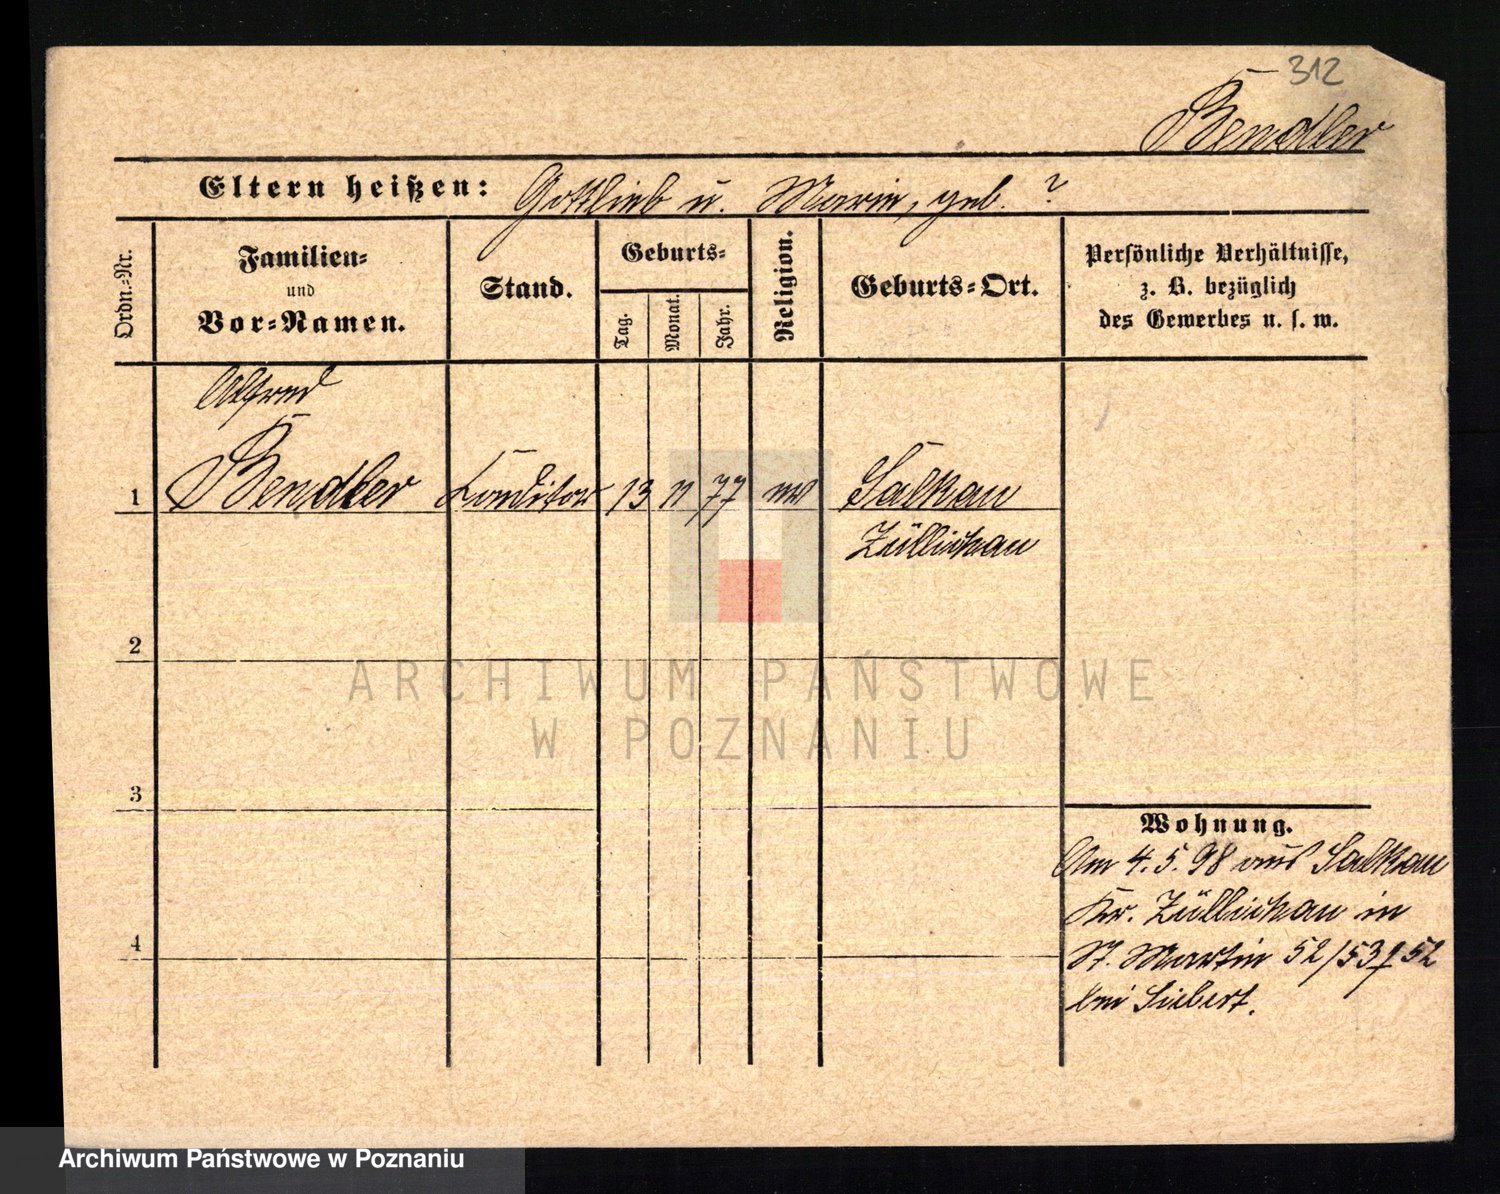 312
Bendler
Eltern heißen: Gottlieb u. Marie, geb. ?
Ordn.-Nr.
Familien-
und
Vor-Namen.
Stand.
Geburts-
Tag.
Monat.
Jahr.
Religion.
Geburts-Ort.
Persönliche Verhältnisse,
z. B. bezüglich
des Gewerbes u. s. w.
Alfred
1 Bendler Conditor 13 11 77 ev Salkau
Züllichau
2
3
4
Wohnung.
Am 4.5.98 aus Salkau
Kr. Züllichau in
St. Martin 52/53 52
bei Siebert.
ARCHIWUM PAŃSTWOWE
W POZNANIU
Archiwum Państwowe w Poznaniu